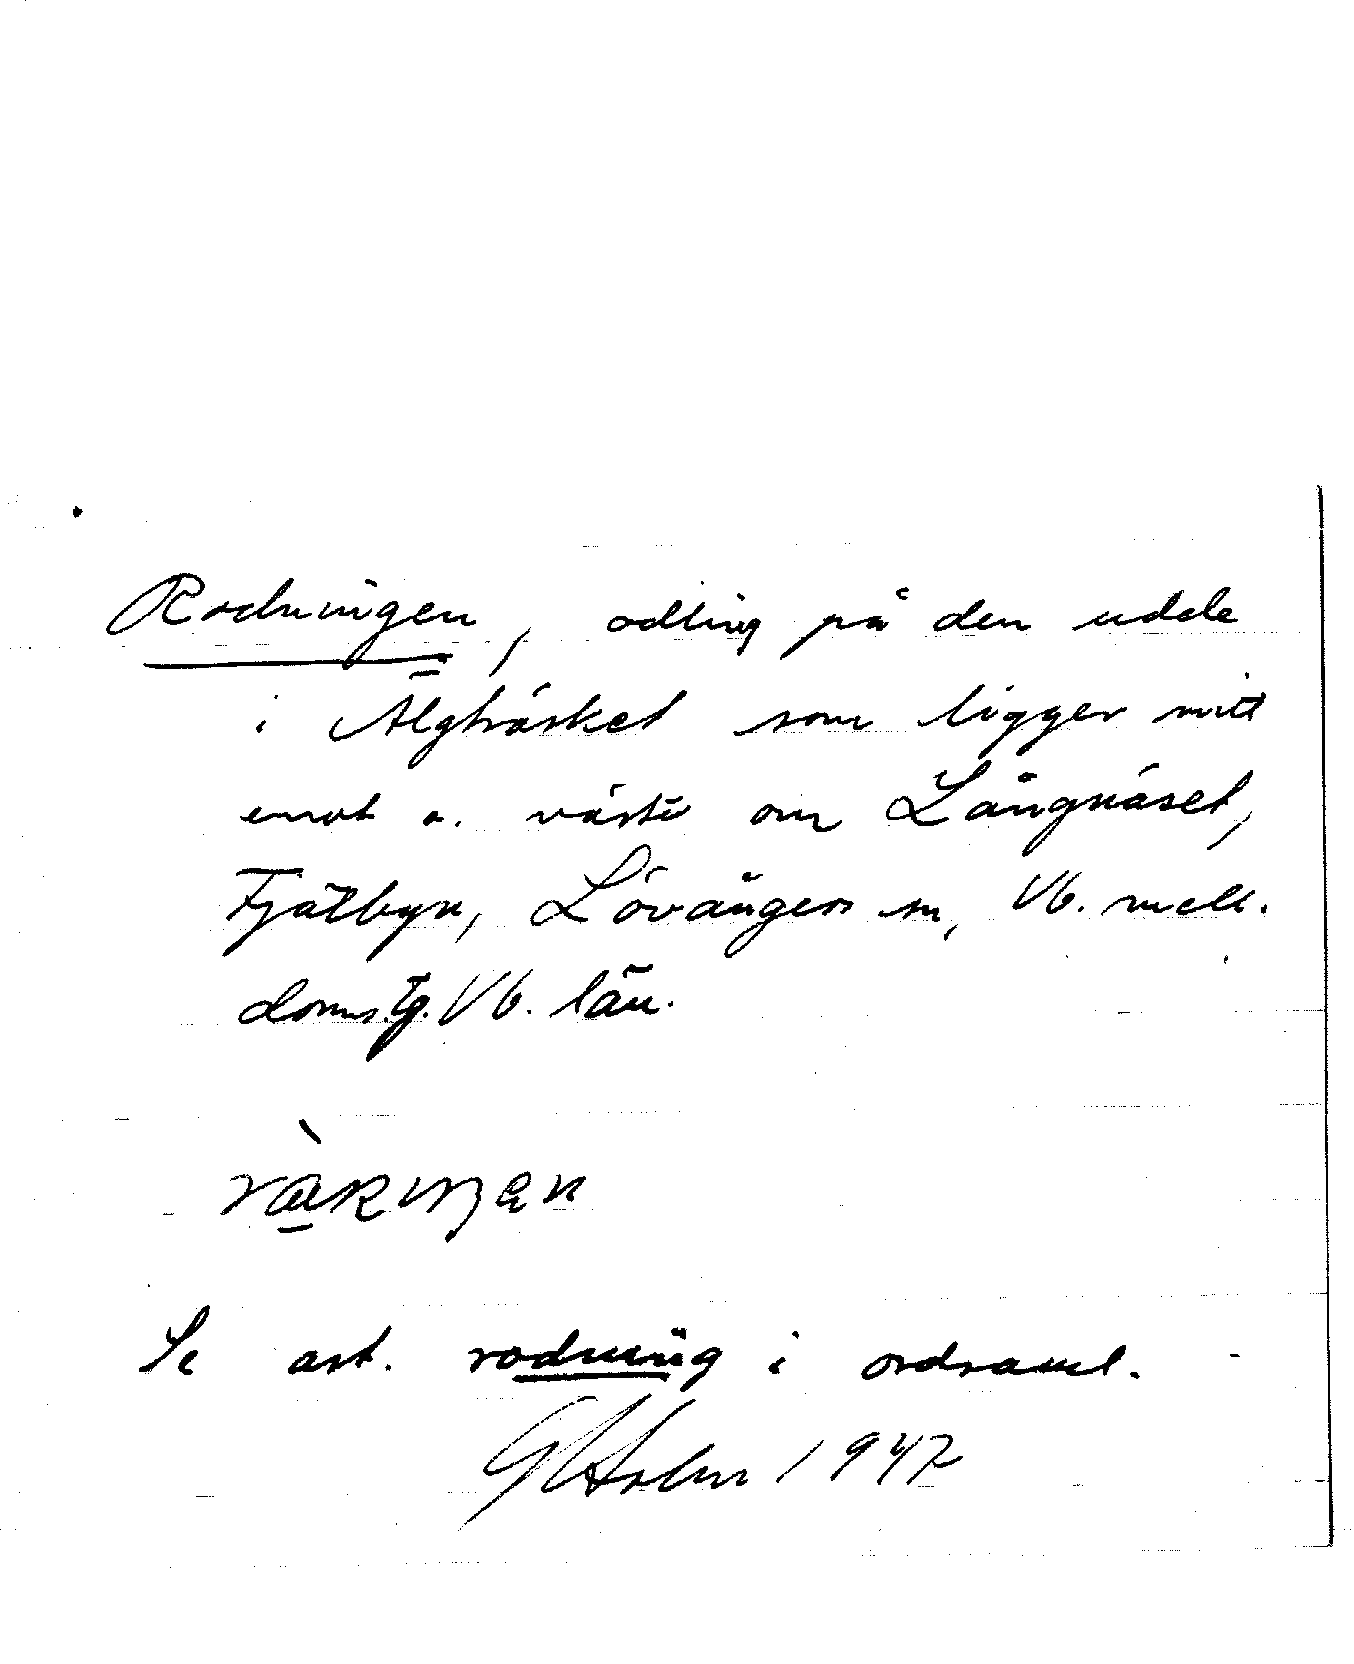 Rodningen, odling på den udde
i Älgträsket som ligger mitt
emot o. väster om Långnäset,
Fjälbyn, Lövångers sn, Vb. mell.
doms.tg. Vb. län.
Se art. rodning i ordsaml.
Holm 1947